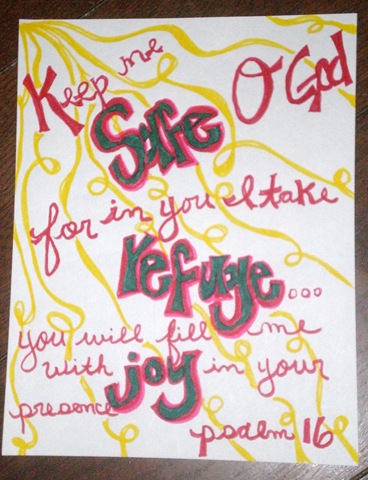 Keep me O God
Safe
for in you I take
refuge...
you will fill me
with joy in your
presence
psalm 16